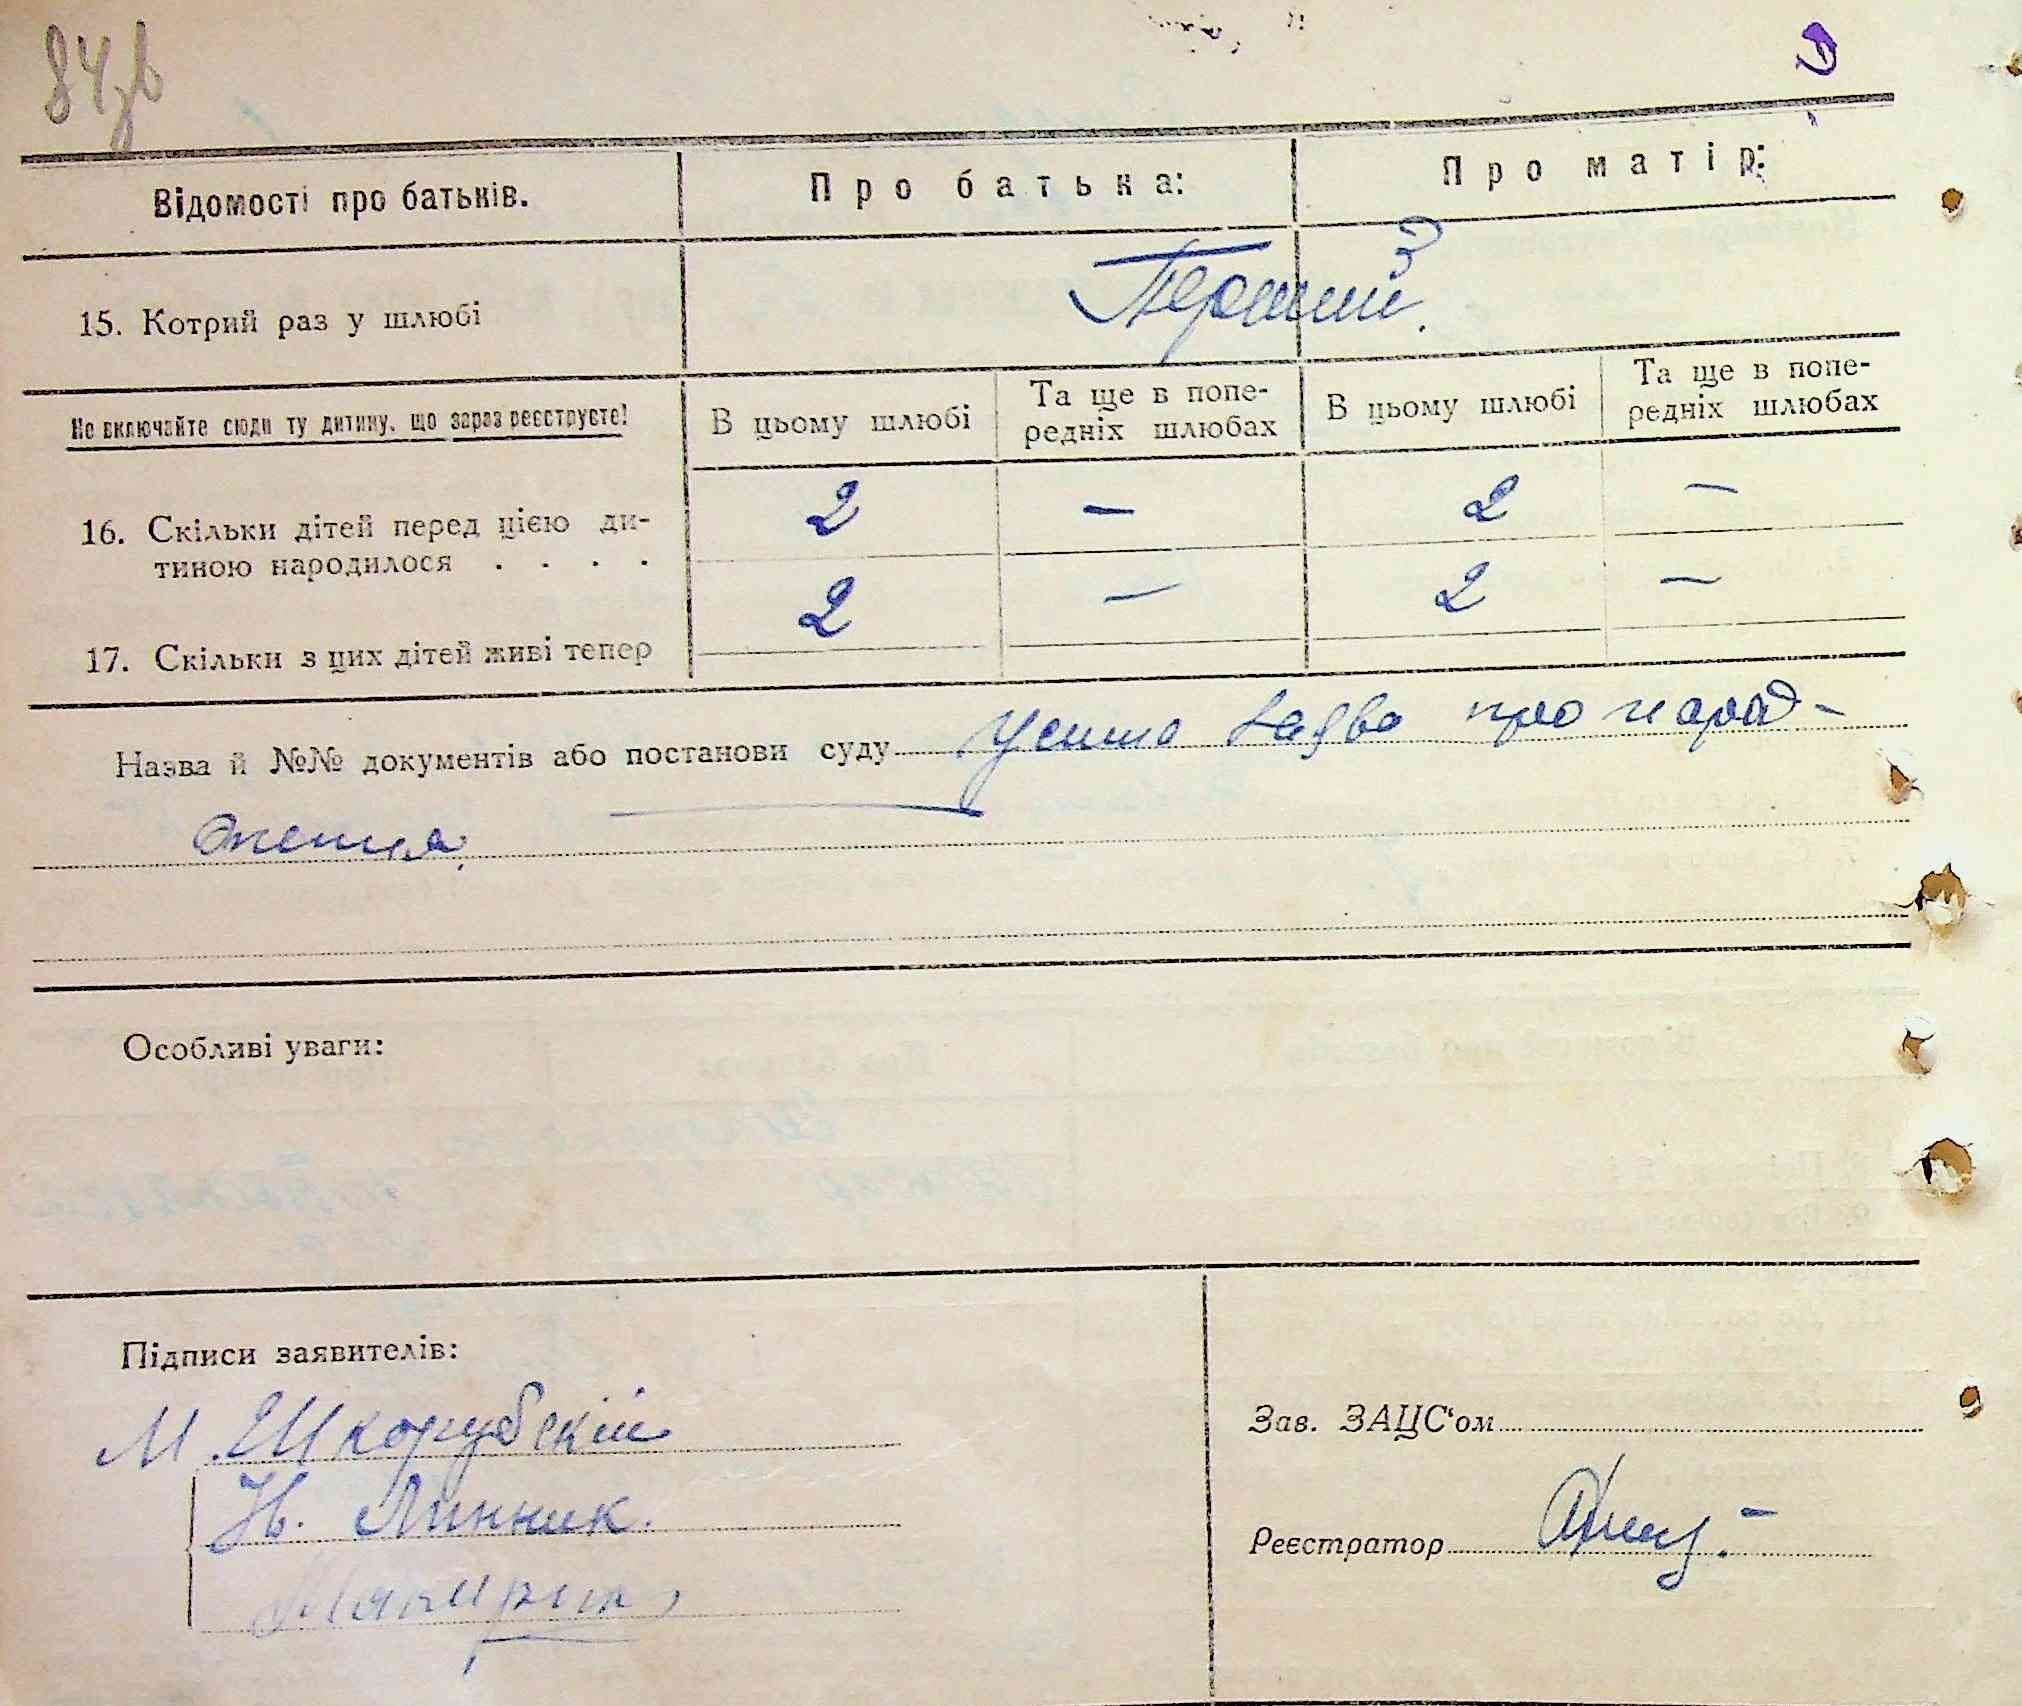 84зв
Відомості про батьків. Про батька: Про матір:
15. Котрий раз у шлюбі Перший.
Не включайте сюди ту дитину, що зараз реєструєте! В цьому шлюбі Та ще в попе- В цьому шлюбі Та ще в попе-
редніх шлюбах редніх шлюбах
16. Скільки дітей перед цією ди- 2 — 2 —
тиною народилося . . . .
17. Скільки з цих дітей живі тепер 2 — 2 —
Назва й №№ документів або постанови суду Усина заява про народ-
ження.
Особливі уваги:
Підписи заявителів:
М. Шкорубский
Зав. ЗАЦС'ом
Н. Линник.
Реєстратор